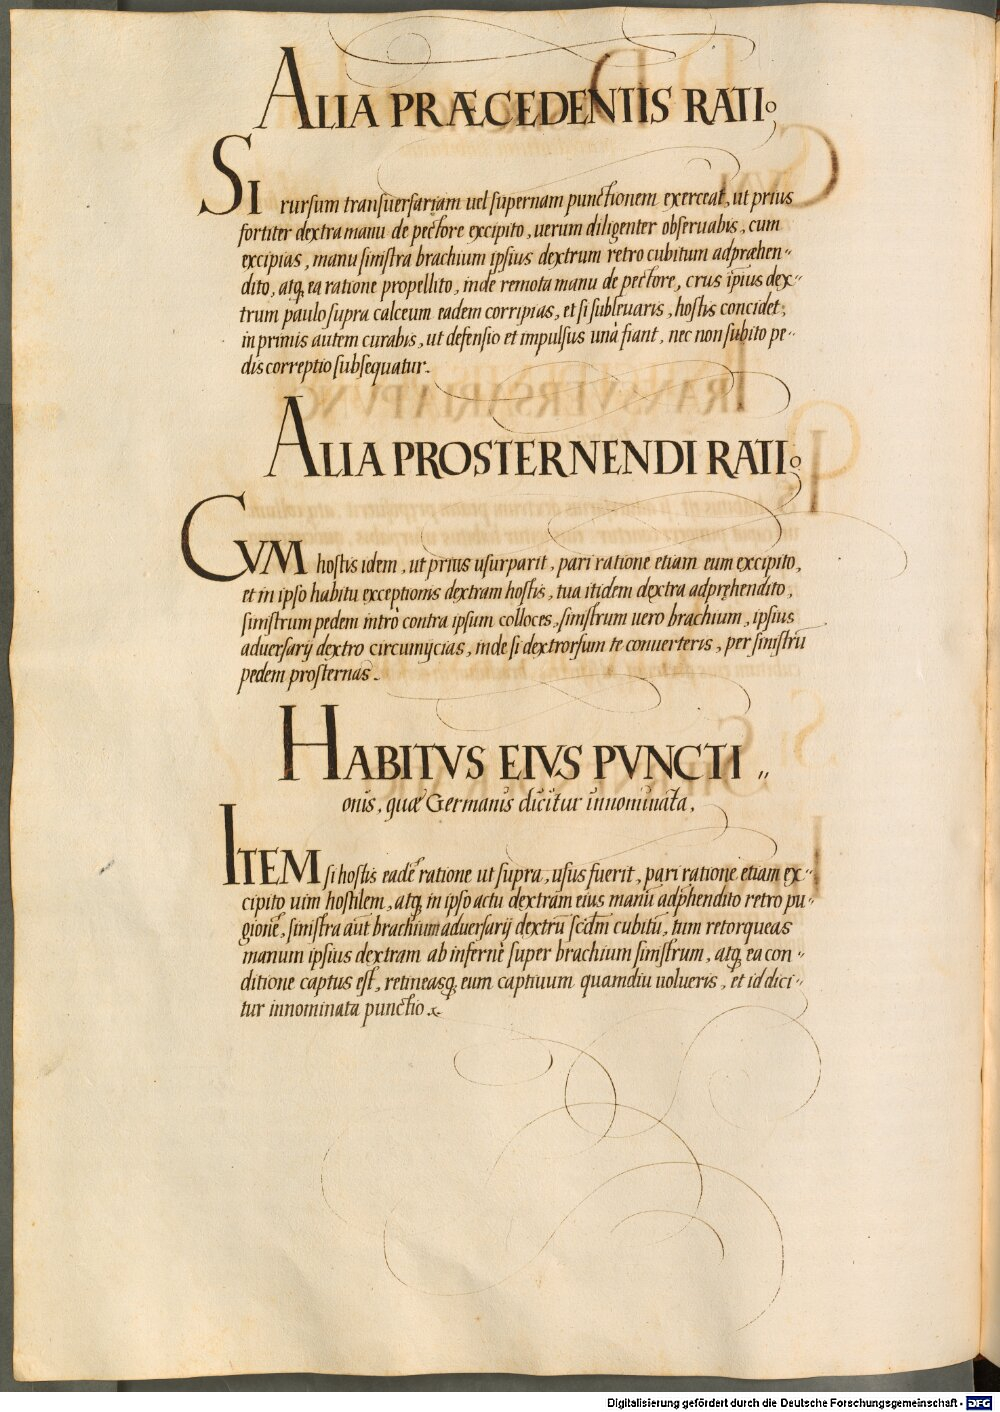 ALIA PRÆCEDENTIS RATIO
SI rursum transuersariam uel supernam punctionem exerceat, ut prius
fortiter dextra manu de pectore excipito, uerum diligenter obseruabis, cum
excipias, manu sinistra brachium ipsius dextrum retro cubitum adpræhen„
dito, atq, ea ratione propellito, inde remota manu de pectore, crus ip̄ius dex„
trum paulo supra calceum eadem corripias, et si subleuaris, hostis concidet,
in primis autem curabis, ut defensio et impulsus unà fiant, nec non subito pe„
dis correptio subsequatur.
ALIA PROSTERNENDI RATIO
CVM hostis idem, ut prius usurparit, pari ratione etiam eum excipito,
et in ipso habitu exceptionis dextram hostis, tua itidem dextra adpręhendito,
sinistrum pedem intrò contra ipsum colloces, sinistrum uero brachium, ipsius
aduersarij dextro circumijcias, inde si dextrorsum te conuerteris, per sinistrū
pedem prosternas.
HABITVS EIVS PVNCTI„
onis, quæ Germanis dicitur innominata,
ITEM si hostis eadē ratione ut supra, usus fuerit, pari ratione etiam ex„
cipito uim hostilem, atq, in ipso actu dextram eius manū adp̄hendito retro pu„
gionē, sinistra aūt brachium aduersarij dextrū scdm̄ cubitū, tum retorqueas
manum ipsius dextram ab infernè super brachium sinistrum, atq, ea con„
ditione captus est, retineasq, eum captiuum quamdiu uolueris, et id dici„
tur innominata punctio.
Digitalisierung gefördert durch die Deutsche Forschungsgemeinschaft - DFG